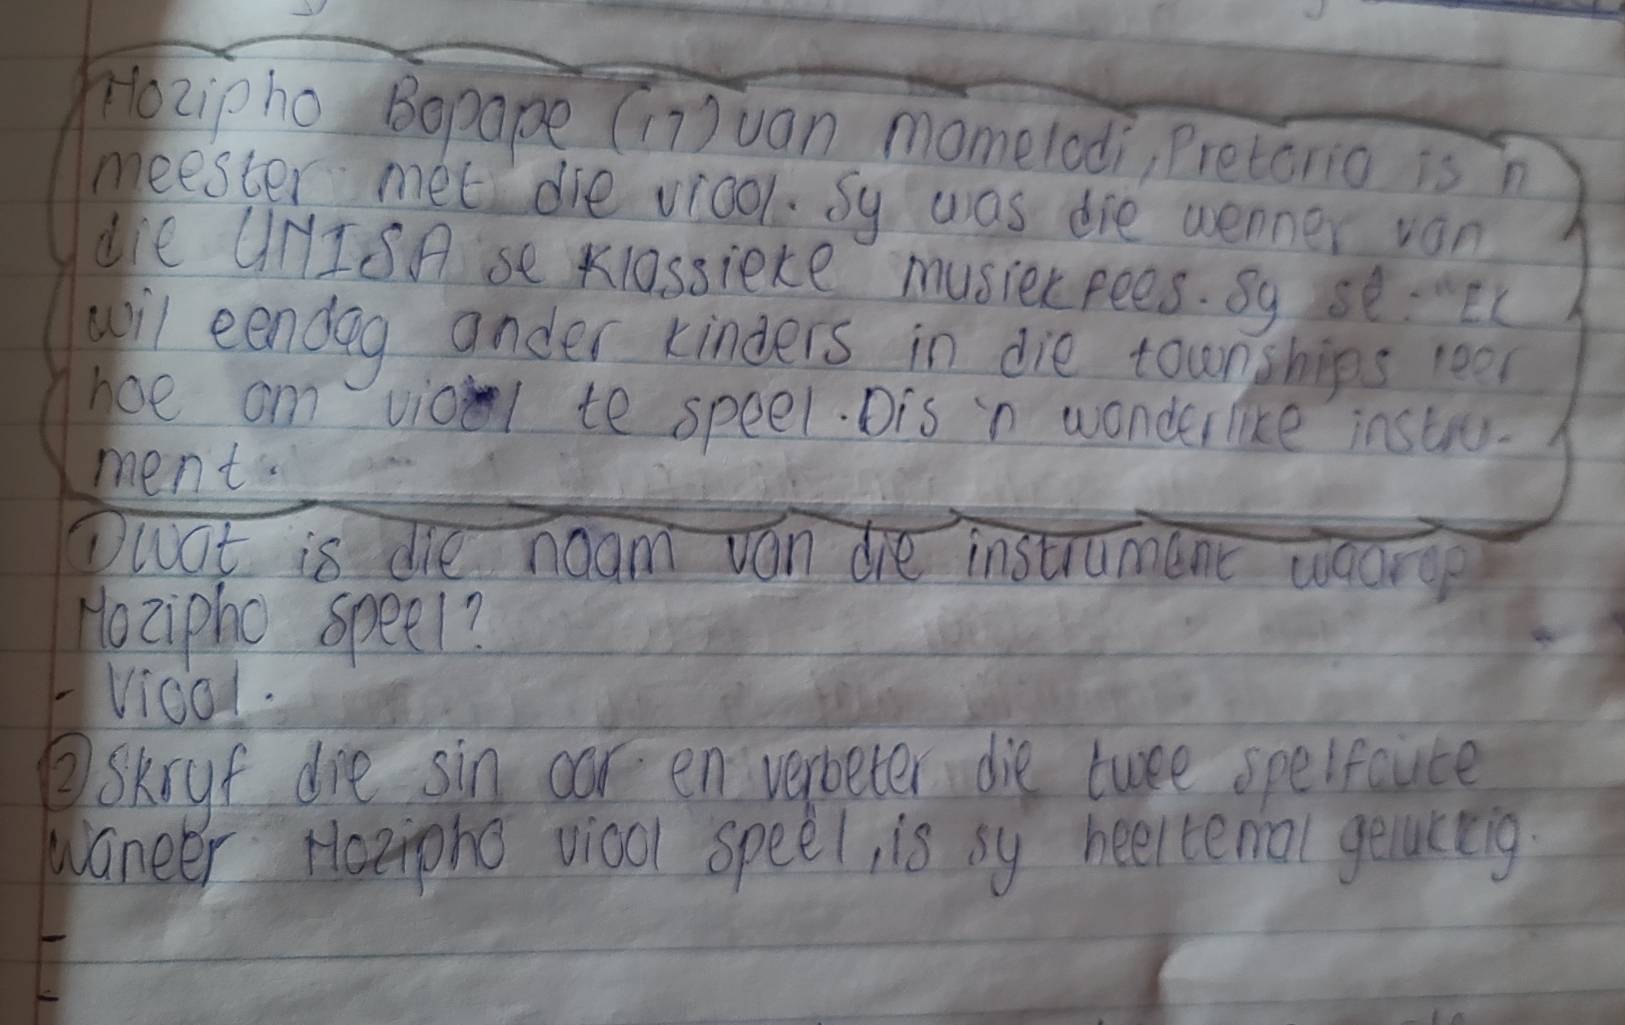 Nozipho Bopape (17) van mamelodi, Pretoria is 'n
meester met die viool. Sy was die wenner van
die UNISA se klassieke musiekfees. Sy sê: "Ek
wil eendag ander kinders in die townships leer
hoe om viool te speel. Dis 'n wonderlike instru-
ment.
① wat is die naam van die instrument waarop
Nozipho speel?
- Viool.
② Skryf die sin oor en verbeter die twee spelfoute
Waneer Nozipho viool speël, is sy heeltemal gelukkig.
-
-